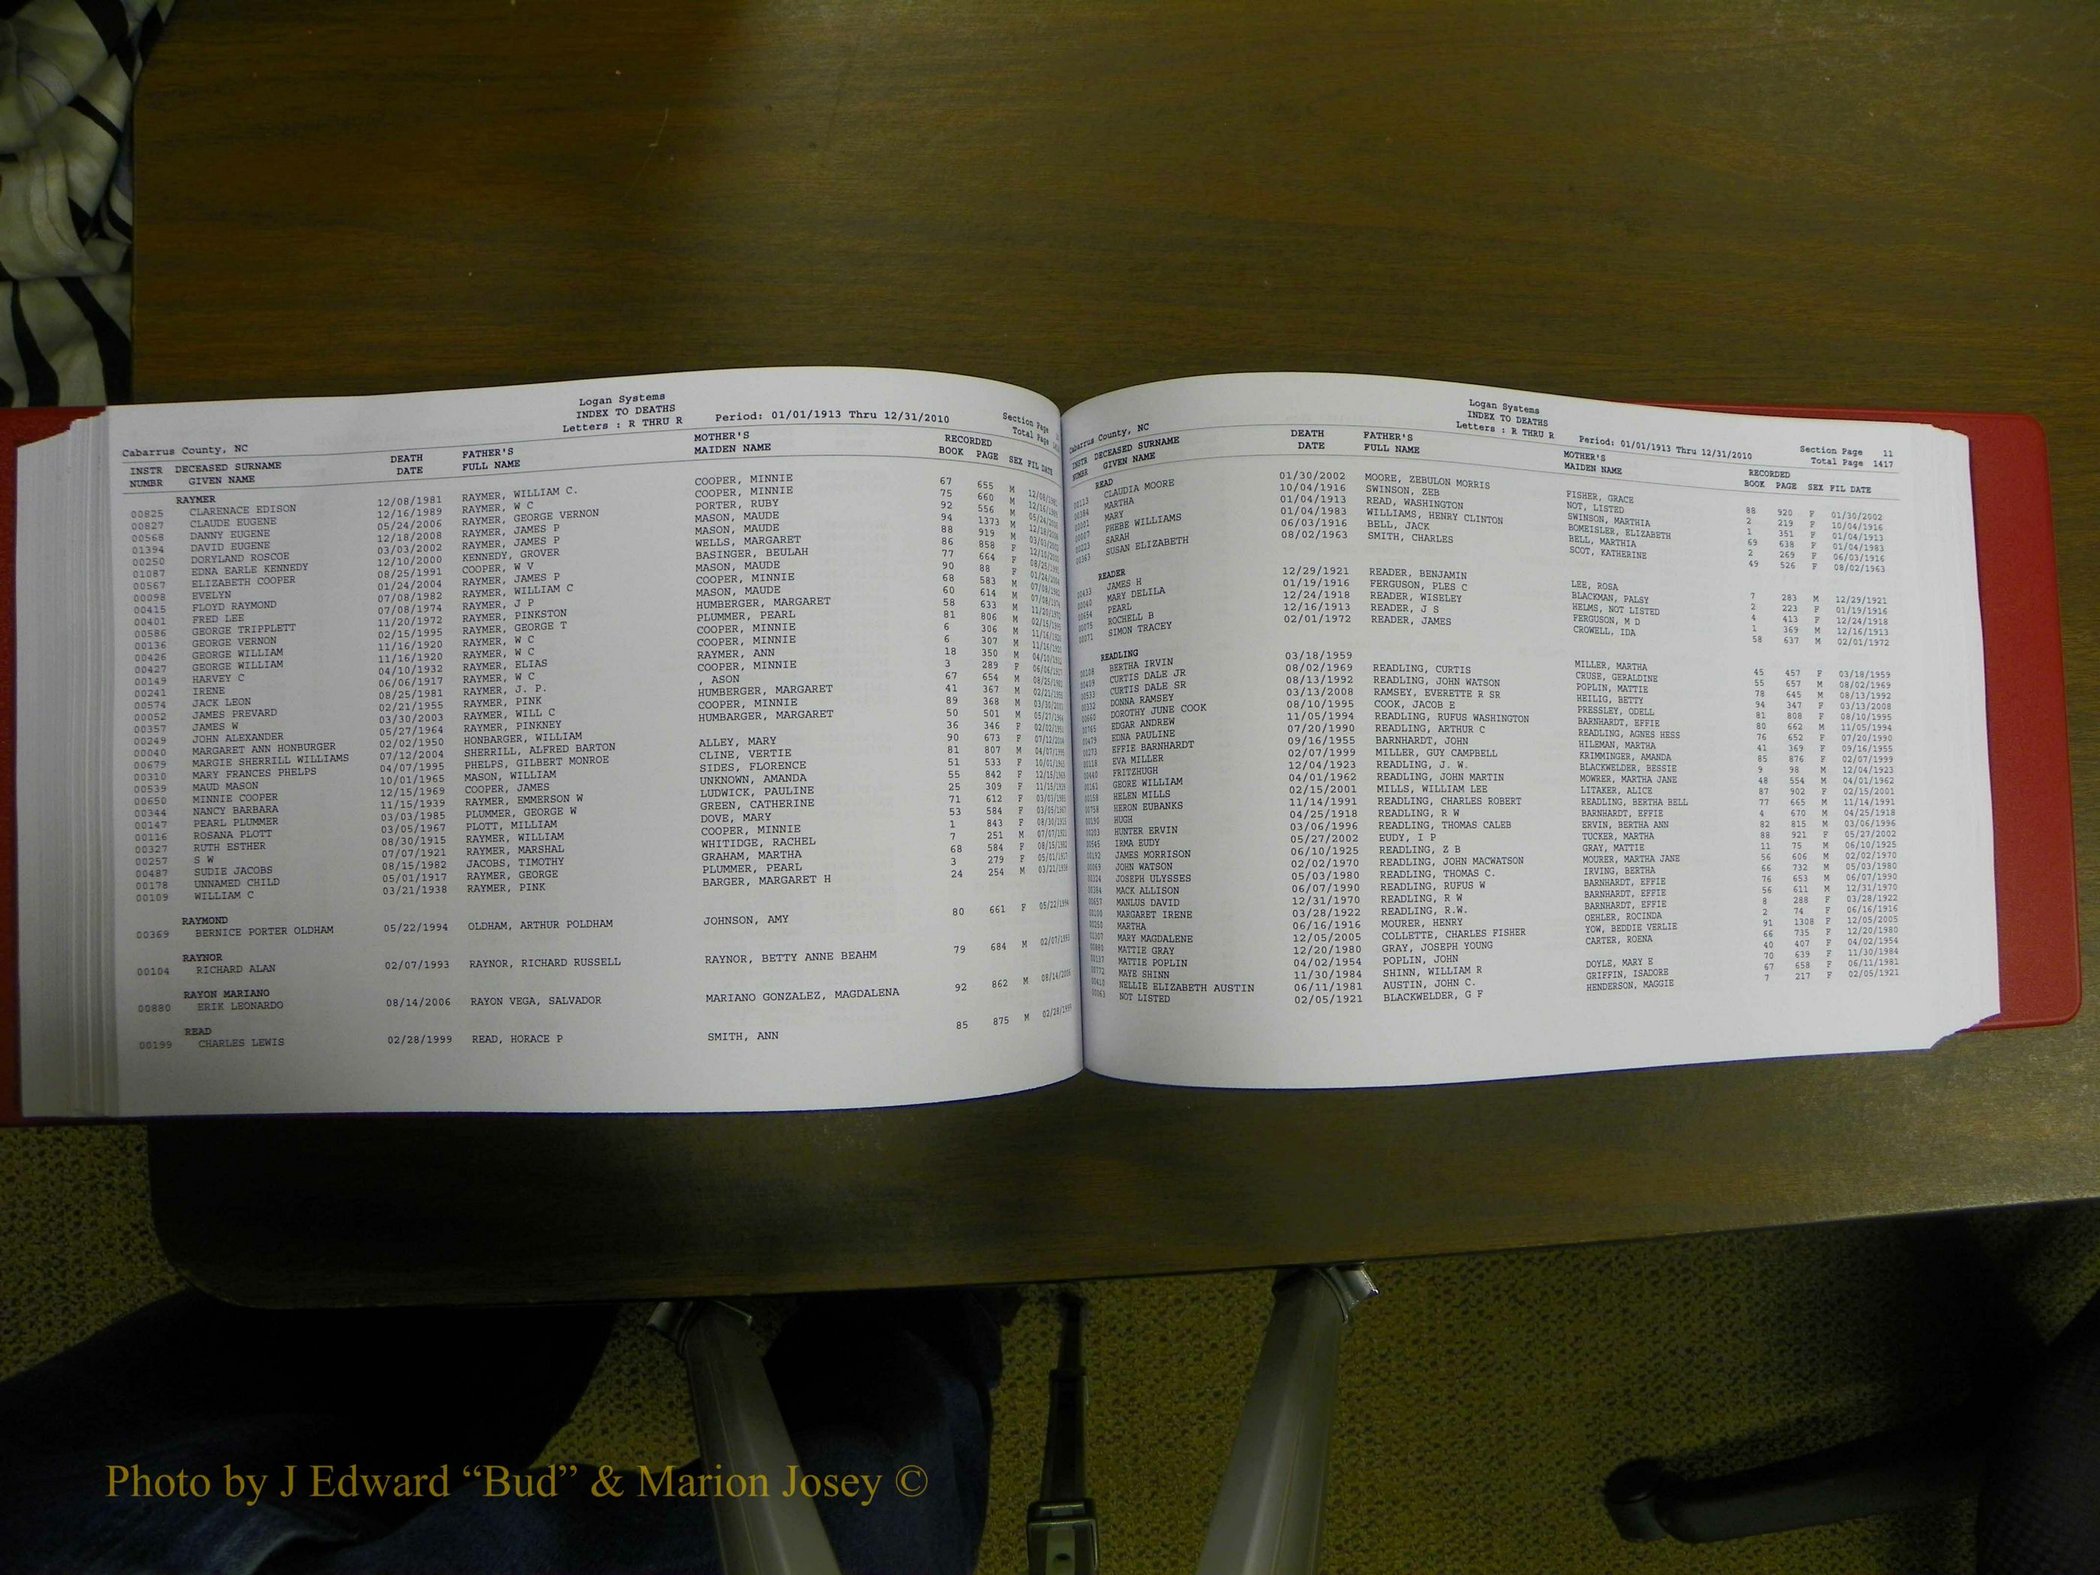 Logan Systems
INDEX TO DEATHS
Letters : R THRU R Period: 01/01/1913 Thru 12/31/2010 Section Page
Cabarrus County, NC Total Page
INSTR DECEASED SURNAME DEATH FATHER'S MOTHER'S RECORDED
NUMBR GIVEN NAME DATE FULL NAME MAIDEN NAME BOOK PAGE SEX FIL DATE
RAYMER
00825 CLARENACE EDISON 12/08/1981 RAYMER, WILLIAM C. COOPER, MINNIE 67 655 M 12/08/1981
00827 CLAUDE EUGENE 12/16/1989 RAYMER, W C COOPER, MINNIE 75 660 M 12/16/1989
00568 DANNY EUGENE 05/24/2006 RAYMER, GEORGE VERNON PORTER, RUBY 92 556 M 05/24/2006
01394 DAVID EUGENE 12/18/2008 RAYMER, JAMES P MASON, MAUDE 94 1373 M 12/18/2008
00250 DORYLAND ROSCOE 03/03/2002 RAYMER, JAMES P MASON, MAUDE 88 919 M 03/03/2002
01087 EDNA EARLE KENNEDY 12/10/2000 KENNEDY, GROVER WELLS, MARGARET 86 858 F 12/10/2000
00567 ELIZABETH COOPER 08/25/1991 COOPER, W V BASINGER, BEULAH 77 664 F 08/25/1991
00098 EVELYN 01/24/2004 RAYMER, JAMES P MASON, MAUDE 90 88 F 01/24/2004
00415 FLOYD RAYMOND 07/08/1982 RAYMER, WILLIAM C COOPER, MINNIE 68 583 M 07/08/1982
00401 FRED LEE 07/08/1974 RAYMER, J P MASON, MAUDE 60 614 M 07/08/1974
00586 GEORGE TRIPPLETT 11/20/1972 RAYMER, PINKSTON HUMBERGER, MARGARET 58 633 M 11/20/1972
00136 GEORGE VERNON 02/15/1995 RAYMER, GEORGE T PLUMMER, PEARL 81 806 M 02/15/1995
00426 GEORGE WILLIAM 11/16/1920 RAYMER, W C COOPER, MINNIE 6 306 M 11/16/1920
00427 GEORGE WILLIAM 11/16/1920 RAYMER, W C COOPER, MINNIE 6 307 M 11/16/1920
00149 HARVEY C 04/10/1932 RAYMER, ELIAS RAYMER, ANN 18 350 M 04/10/1932
00241 IRENE 06/06/1917 RAYMER, W C COOPER, MINNIE 3 289 F 06/06/1917
00574 JACK LEON 08/25/1981 RAYMER, J. P. , ASON 67 654 M 08/25/1981
00052 JAMES PREVARD 02/21/1955 RAYMER, PINK HUMBERGER, MARGARET 41 367 M 02/21/1955
00357 JAMES W 03/30/2003 RAYMER, WILL C COOPER, MINNIE 89 368 M 03/30/2003
00249 JOHN ALEXANDER 05/27/1964 RAYMER, PINKNEY HUMBARGER, MARGARET 50 501 M 05/27/1964
00040 MARGARET ANN HONBURGER 02/02/1950 HONBARGER, WILLIAM 36 346 F 02/02/1950
00679 MARGIE SHERRILL WILLIAMS 07/12/2004 SHERRILL, ALFRED BARTON ALLEY, MARY 90 673 F 07/12/2004
00310 MARY FRANCES PHELPS 04/07/1995 PHELPS, GILBERT MONROE CLINE, VERTIE 81 807 M 04/07/1995
00539 MAUD MASON 10/01/1965 MASON, WILLIAM SIDES, FLORENCE 51 533 F 10/01/1965
00650 MINNIE COOPER 12/15/1969 COOPER, JAMES UNKNOWN, AMANDA 55 842 F 12/15/1969
00344 NANCY BARBARA 11/15/1939 RAYMER, EMMERSON W LUDWICK, PAULINE 25 309 F 11/15/1939
00147 PEARL PLUMMER 03/03/1985 PLUMMER, GEORGE W GREEN, CATHERINE 71 612 F 03/03/1985
00116 ROSANA PLOTT 03/05/1967 PLOTT, MILLIAM DOVE, MARY 53 584 F 03/05/1967
00327 RUTH ESTHER 08/30/1915 RAYMER, WILLIAM COOPER, MINNIE 1 843 F 08/30/1915
00257 S W 07/07/1921 RAYMER, MARSHAL WHITIDGE, RACHEL 7 251 M 07/07/1921
00487 SUDIE JACOBS 08/15/1982 JACOBS, TIMOTHY GRAHAM, MARTHA 68 584 F 08/15/1982
00178 UNNAMED CHILD 05/01/1917 RAYMER, GEORGE PLUMMER, PEARL 3 279 F 05/01/1917
00109 WILLIAM C 03/21/1938 RAYMER, PINK BARGER, MARGARET H 24 254 M 03/21/1938
RAYMOND
00369 BERNICE PORTER OLDHAM 05/22/1994 OLDHAM, ARTHUR POLDHAM JOHNSON, AMY 80 661 F 05/22/1994
RAYNOR
00104 RICHARD ALAN 02/07/1993 RAYNOR, RICHARD RUSSELL RAYNOR, BETTY ANNE BEAHM 79 684 M 02/07/1993
RAYON MARIANO
00880 ERIK LEONARDO 08/14/2006 RAYON VEGA, SALVADOR MARIANO GONZALEZ, MAGDALENA 92 862 M 08/14/2006
READ
00199 CHARLES LEWIS 02/28/1999 READ, HORACE P SMITH, ANN 85 875 M 02/28/1999
Logan Systems
INDEX TO DEATHS
Letters : R THRU R Period: 01/01/1913 Thru 12/31/2010 Section Page 11
Cabarrus County, NC Total Page 1417
INSTR DECEASED SURNAME DEATH FATHER'S MOTHER'S RECORDED
NUMBR GIVEN NAME DATE FULL NAME MAIDEN NAME BOOK PAGE SEX FIL DATE
READ
00113 CLAUDIA MOORE 01/30/2002 MOORE, ZEBULON MORRIS FISHER, GRACE 88 920 F 01/30/2002
00384 MARTHA 10/04/1916 SWINSON, ZEB NOT, LISTED 2 219 F 10/04/1916
00001 MARY 01/04/1913 READ, WASHINGTON SWINSON, MARTHIA 1 351 F 01/04/1913
00007 PHEBE WILLIAMS 01/04/1983 WILLIAMS, HENRY CLINTON BOMEISLER, ELIZABETH 69 638 F 01/04/1983
00223 SARAH 06/03/1916 BELL, JACK BELL, MARTHIA 2 269 F 06/03/1916
00363 SUSAN ELIZABETH 08/02/1963 SMITH, CHARLES SCOT, KATHERINE 49 526 F 08/02/1963
READER
00433 JAMES H 12/29/1921 READER, BENJAMIN LEE, ROSA 7 283 M 12/29/1921
00040 MARY DELILA 01/19/1916 FERGUSON, PLES C BLACKMAN, PALSY 2 223 F 01/19/1916
00654 PEARL 12/24/1918 READER, WISELEY HELMS, NOT LISTED 4 413 F 12/24/1918
00075 ROCHELL B 12/16/1913 READER, J S FERGUSON, M D 1 369 M 12/16/1913
00071 SIMON TRACEY 02/01/1972 READER, JAMES CROWELL, IDA 58 637 M 02/01/1972
READLING
00108 BERTHA IRVIN 03/18/1959 MILLER, MARTHA 45 457 F 03/18/1959
00409 CURTIS DALE JR 08/02/1969 READLING, CURTIS CRUSE, GERALDINE 55 657 M 08/02/1969
00533 CURTIS DALE SR 08/13/1992 READLING, JOHN WATSON POPLIN, MATTIE 78 645 M 08/13/1992
00332 DONNA RAMSEY 03/13/2008 RAMSEY, EVERETTE R SR HEILIG, BETTY 94 347 F 03/13/2008
00660 DOROTHY JUNE COOK 08/10/1995 COOK, JACOB E PRESSLEY, ODELL 81 808 F 08/10/1995
00765 EDGAR ANDREW 11/05/1994 READLING, RUFUS WASHINGTON BARNHARDT, EFFIE 80 662 M 11/05/1994
00479 EDNA PAULINE 07/20/1990 READLING, ARTHUR C READLING, AGNES HESS 76 652 F 07/20/1990
00273 EFFIE BARNHARDT 09/16/1955 BARNHARDT, JOHN HILEMAN, MARTHA 41 369 F 09/16/1955
00118 EVA MILLER 02/07/1999 MILLER, GUY CAMPBELL KRIMMINGER, AMANDA 85 876 F 02/07/1999
00440 FRITZHUGH 12/04/1923 READLING, J. W. BLACKWELDER, BESSIE 9 98 M 12/04/1923
00161 GEORE WILLIAM 04/01/1962 READLING, JOHN MARTIN MOWRER, MARTHA JANE 48 554 M 04/01/1962
00158 HELEN MILLS 02/15/2001 MILLS, WILLIAM LEE LITAKER, ALICE 87 902 F 02/15/2001
00758 HERON EUBANKS 11/14/1991 READLING, CHARLES ROBERT READLING, BERTHA BELL 77 665 M 11/14/1991
00190 HUGH 04/25/1918 READLING, R W BARNHARDT, EFFIE 4 670 M 04/25/1918
00203 HUNTER ERVIN 03/06/1996 READLING, THOMAS CALEB ERVIN, BERTHA ANN 82 815 M 03/06/1996
00545 IRMA EUDY 05/27/2002 EUDY, I P TUCKER, MARTHA 88 921 F 05/27/2002
00192 JAMES MORRISON 06/10/1925 READLING, Z B GRAY, MATTIE 11 75 M 06/10/1925
00069 JOHN WATSON 02/02/1970 READLING, JOHN MACWATSON MOURER, MARTHA JANE 56 606 M 02/02/1970
00324 JOSEPH ULYSSES 05/03/1980 READLING, THOMAS C. IRVING, BERTHA 66 732 M 05/03/1980
00384 MACK ALLISON 06/07/1990 READLING, RUFUS W BARNHARDT, EFFIE 76 653 M 06/07/1990
00657 MANLUS DAVID 12/31/1970 READLING, R W BARNHARDT, EFFIE 56 611 M 12/31/1970
00100 MARGARET IRENE 03/28/1922 READLING, R.W. BARNHARDT, EFFIE 8 288 F 03/28/1922
00250 MARTHA 06/16/1916 MOURER, HENRY OEHLER, ROCINDA 2 74 F 06/16/1916
01307 MARY MAGDALENE 12/05/2005 COLLETTE, CHARLES FISHER YOW, BEDDIE VERLIE 91 1308 F 12/05/2005
00880 MATTIE GRAY 12/20/1980 GRAY, JOSEPH YOUNG CARTER, ROENA 66 735 F 12/20/1980
00137 MATTIE POPLIN 04/02/1954 POPLIN, JOHN 40 407 F 04/02/1954
00772 MAYE SHINN 11/30/1984 SHINN, WILLIAM R DOYLE, MARY E 70 639 F 11/30/1984
00410 NELLIE ELIZABETH AUSTIN 06/11/1981 AUSTIN, JOHN C. GRIFFIN, ISADORE 67 658 F 06/11/1981
00063 NOT LISTED 02/05/1921 BLACKWELDER, G F HENDERSON, MAGGIE 7 217 F 02/05/1921
Photo by J Edward “Bud” & Marion Josey ©